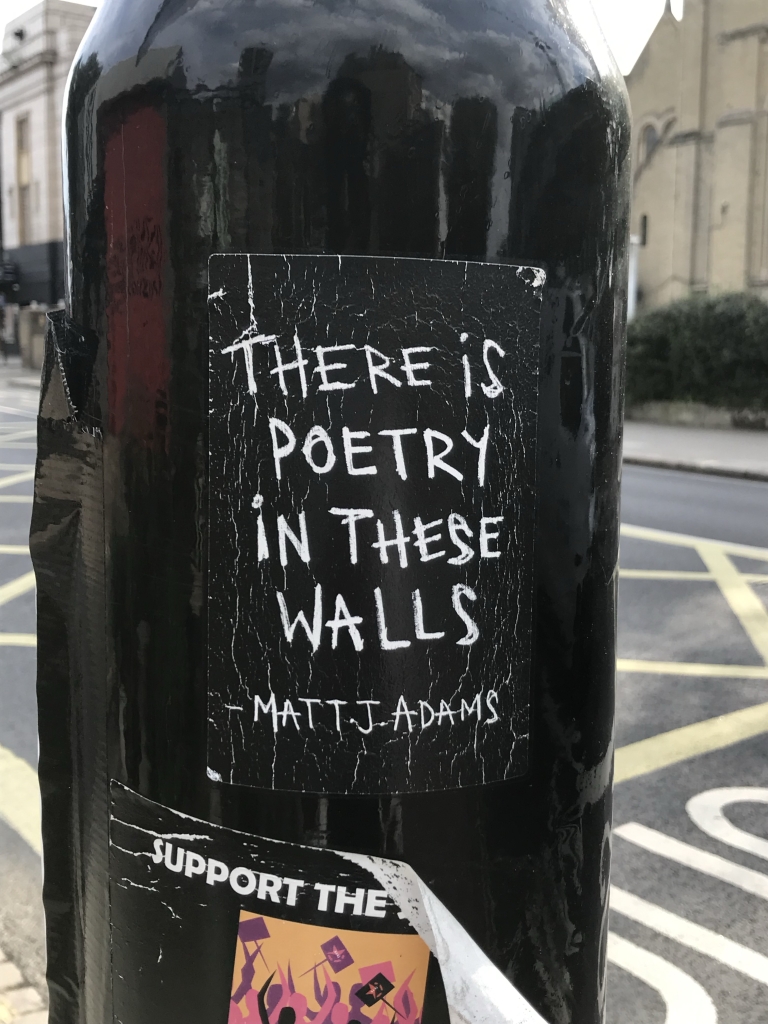 THERE iS
POETRY
iN THESE
WALLS
- MATT J ADAMS
SUPPORT THE